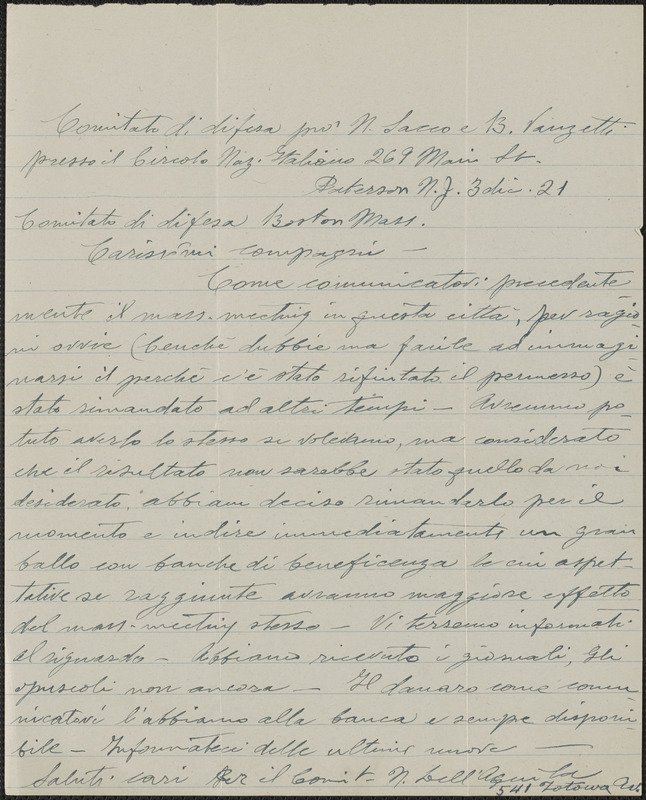 Comitato di difesa pro' N. Sacco e B. Vanzetti
presso il Circolo Naz. Italiano 269 Main St.
Paterson N.J. 3 dic. 21
Comitato di difesa Boston Mass.
Carissimi compagni —
Come comunicatovi precedente
mente il mass-meeting in questa città, per ragio-
ni ovvie (benchè dubbie ma facile ad immagi-
narsi il perchè c'è stato rifiutato il permesso) è
stato rimandato ad altri tempi — Avremmo po-
tuto averlo lo stesso se volevamo, ma considerato
che il risultato non sarebbe stato quello da noi
desiderato, abbiam deciso rimandarlo per il
momento e indire immediatamente un gran
ballo con banche di beneficenza le cui aspet-
tative se raggiunte avranno maggiore effetto
del mass-meeting stesso — Vi terremo informati
al riguardo — Abbiamo ricevuto i giornali, gli
opuscoli non ancora — Il danaro come comu-
nicatovi l'abbiamo alla banca e sempre disponi-
bile — Informateci delle ultime nuove —
Saluti cari Per il Comit. N. Dell'Aquila
541 Totowa Av.